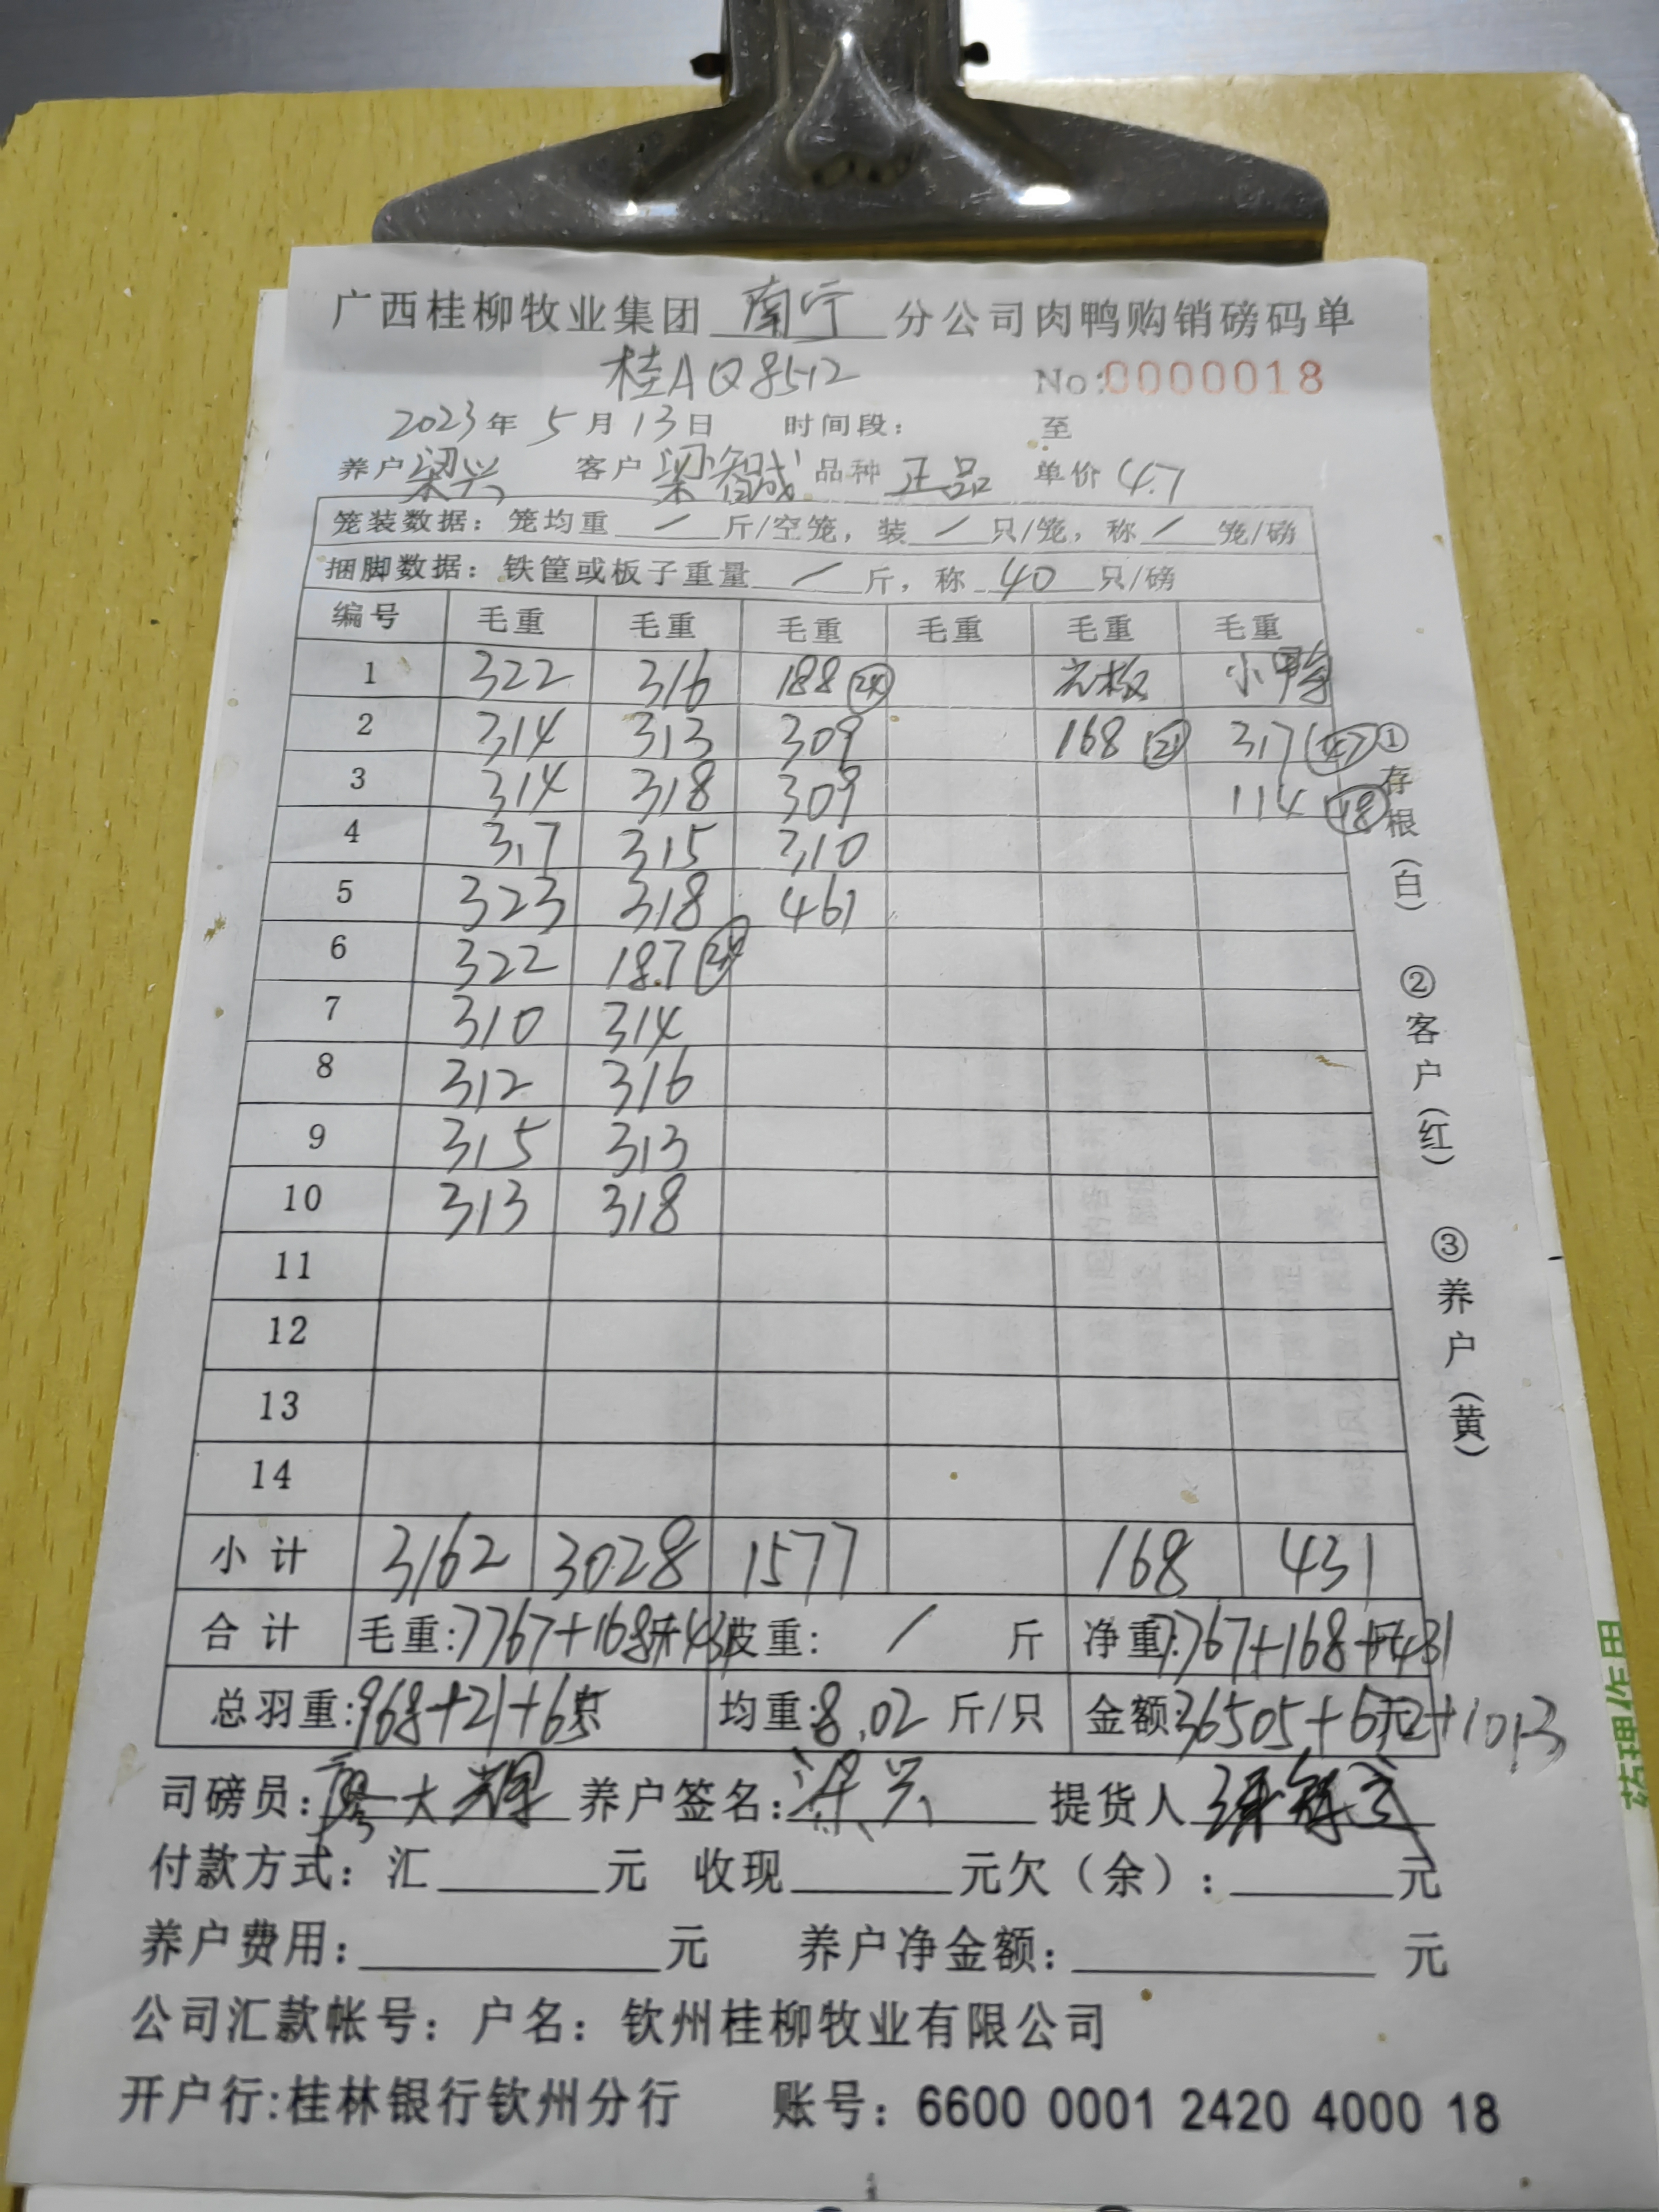 广西桂柳牧业集团 南宁 分公司肉鸭购销磅码单
桂AQ8512
No:0000018
2023年 5月 13日 时间段: 至
养户 梁兴 客户 梁智诚 品种 正品 单价 4.7
笼装数据: 笼均重 / 斤/空笼, 装 / 只/笼, 称 / 笼/磅
捆脚数据: 铁筐或板子重量 / 斤, 称 40 只/磅
编号 毛重 毛重 毛重 毛重 毛重 毛重
1 322 316 188 (24) 光板 小鸭
2 314 313 309 168 (21) 317 (47)
3 314 318 309 114 (18)
4 317 315 310
5 323 318 461
6 322 187 (24)
7 310 314
8 312 316
9 315 313
10 313 318
11
12
13
14
小计 3162 3028 1577 168 431
合计 毛重:7767+168+431 皮重: / 斤 净重:7767+168+431
总羽重:968+21+65 均重:8.02 斤/只 金额:36505+672+1013
司磅员: 养户签名:梁兴 提货人
付款方式: 汇 元 收现 元欠(余): 元
养户费用: 元 养户净金额: 元
公司汇款帐号: 户名: 钦州桂柳牧业有限公司
开户行:桂林银行钦州分行 账号: 6600 0001 2420 4000 18
①存根(白) ②客户(红) ③养户(黄)
药理作用